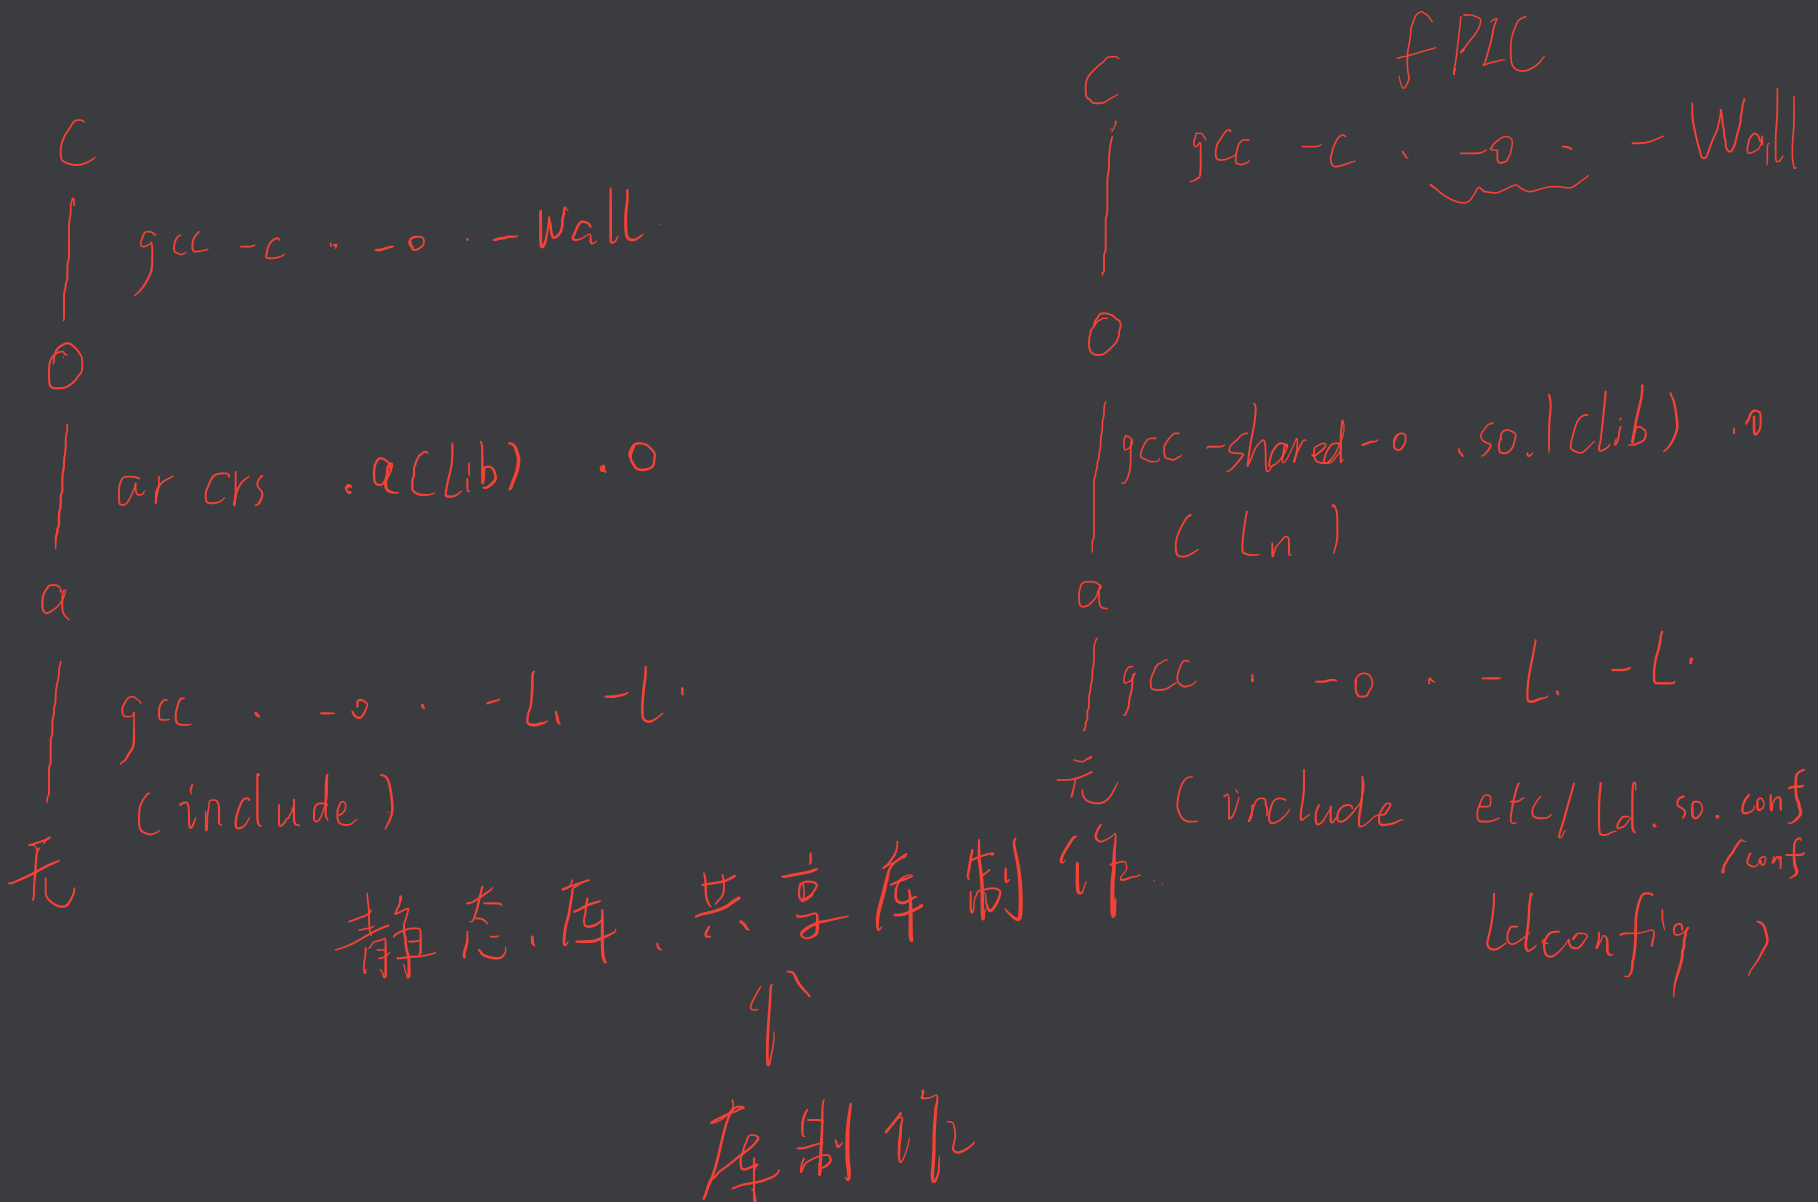 C
gcc -c . -o . -Wall
O
ar crs .a(lib) .o
a
gcc . -o . -L. -l.
(include)
无
fPIC
C
gcc -c . -o . -Wall
O
gcc -shared -o .so.1(lib) .o
(ln)
a
gcc . -o . -L. -l.
无
(include etc/ld.so.conf
/conf
ldconfig)
静态库、共享库制作
个
库制作